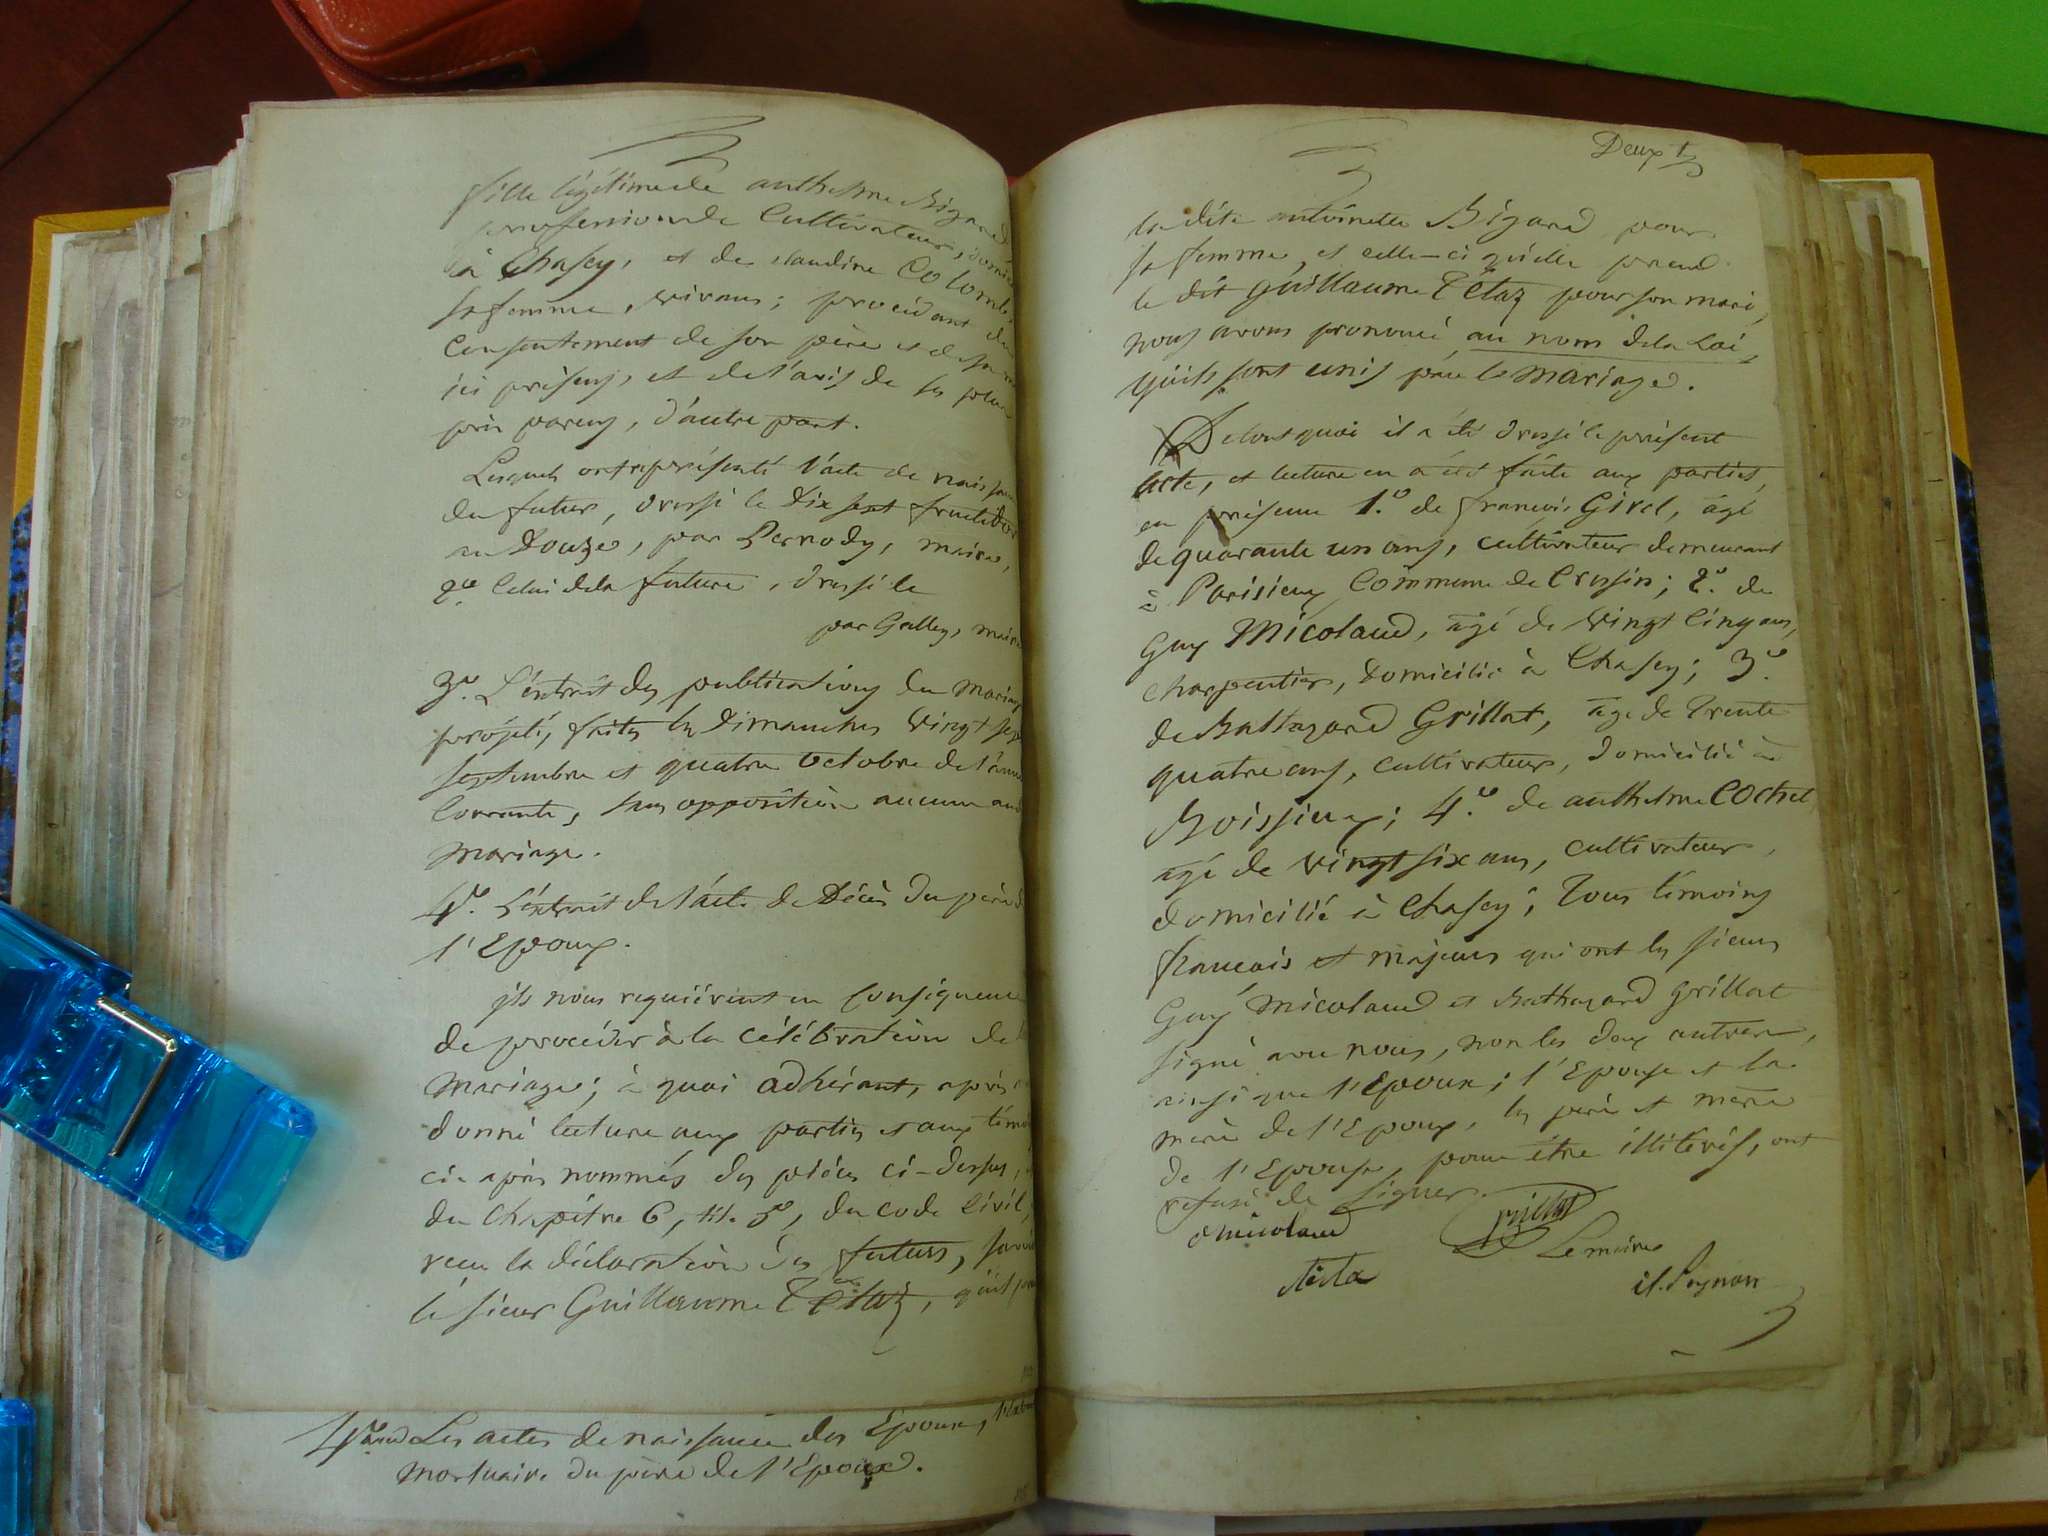 fille légitime de anthelme Bigard
profession de Cultivateur,
à Chasey, et de claudine Colomb
sa femme, vivans; procédant du
Consentement de son père et de sa
ici présens, et de l'avis de ses plus
près parens, d'autre part.
Lesquels ont représenté l'acte de naissance
du futur, dressé le dix sept fructidor
an Douze, par Pernody, maire,
2º Celui de la future, dressé le
par Galley, maire
3º. L'extrait des publications du mariage
projeté, faites les dimanches vingt sept
septembre et quatre octobre de l'année
Courante, sans opposition aucune au
mariage.
4º. L'extrait de l'acte de Décès du père de
l'Epoux.
ils nous requièrent en Conséquence
de procéder à la célébration de
mariage; à quoi adhérant, après
donné lecture aux parties et aux témoins
ci-après nommés des pièces ci-dessus,
du Chapitre 6, tit. 5º, du code Civil,
reçu la déclaration des futurs, savoir
le sieur Guillaume Tétaz, qu'il prend
4º Les actes de naissance des Epoux, l'extrait
mortuaire du père de l'Epoux.
Deux
la dite antoinette Bigard pour
sa femme, et celle-ci qu'elle prend
le dit guillaume Tétaz pour son mari,
nous avons prononcé au nom de la Loi,
qu'ils sont unis par le mariage.
De tout quoi il a été dressé le présent
acte, et lecture en a été faite aux parties,
en présence 1.º de françois Girel, âgé
de quarante un ans, cultivateur demeurant
à Parisieux Commune de Cressin; 2.º de
Guy Micolaud, âgé de vingt Cinq ans,
charpentier, domicilié à Chasey; 3.º
de Baltazard Grillat, âgé de Trente
quatre ans, cultivateur, domicilié à
Boissieux; 4.º de anthelme Cochet
âgé de vingt six ans, cultivateur,
domicilié à Chasey; Tous témoins
français et majeurs qui ont les sieurs
Guy micolaud et Balthazard grillat
signé avec nous, non les deux autres,
ainsi que l'Epoux; l'Epouse et la
mère de l'Epoux, les père et mère
de l'Epouse, pour être illitérés, ont
refusé de signer.
micolaud
grillat
Le maire
téta